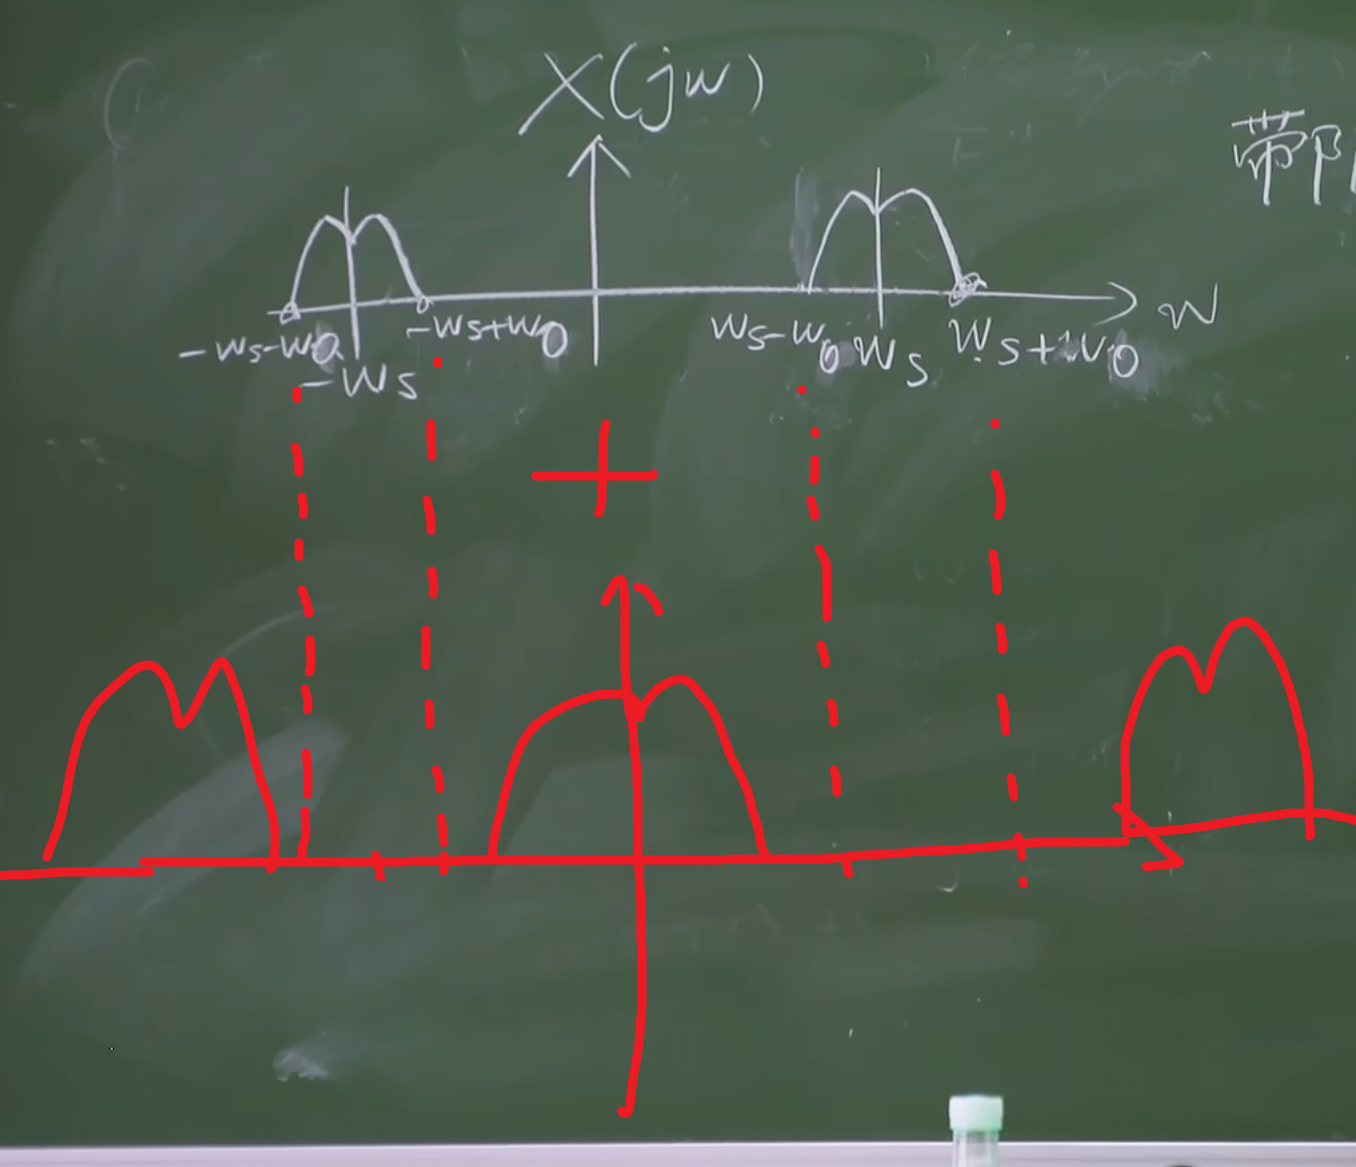 X(jw)
带阝
w
-ws-w0 -ws+w0 ws-w0 ws ws+w0
-ws
+